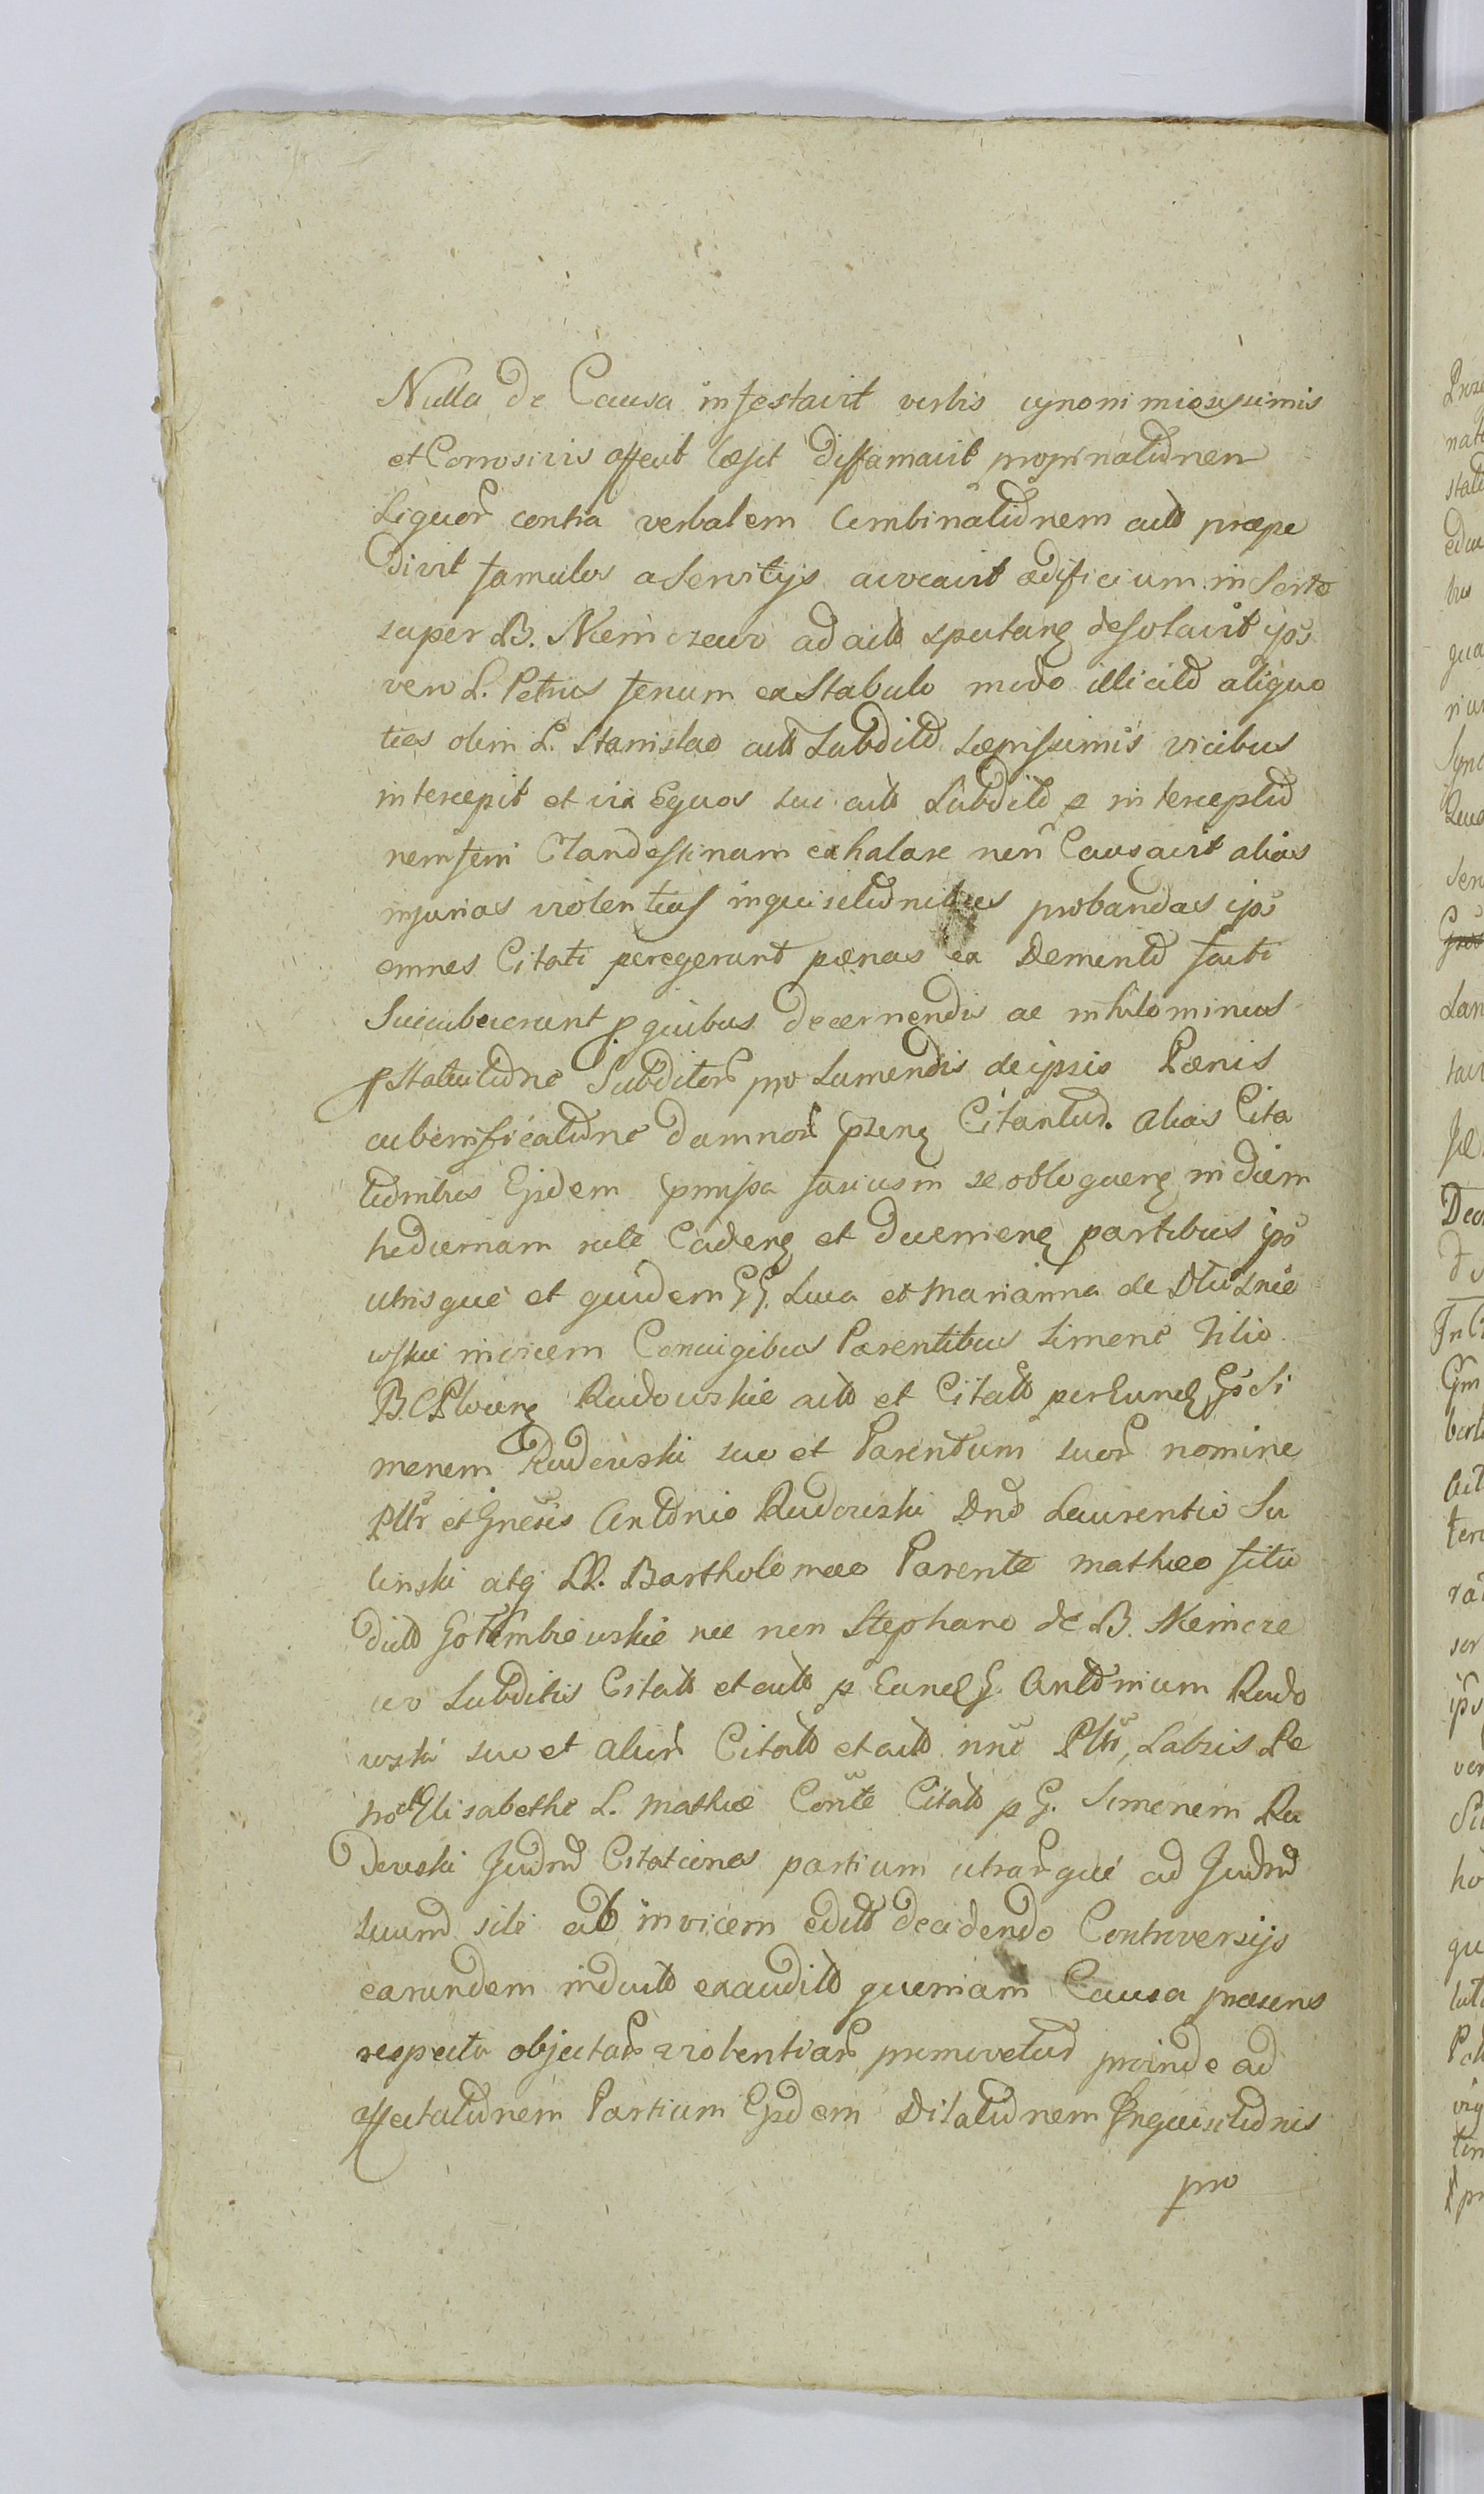 Nulla de Causa infestavit verbis ignominiosissimis
et Corrosivis affecit læsit diffamavit propinationem
Liquor contra verbalem Combinationem act præpe
divit famulos a Servitijs avocavit ædificium in Sorte
super B. Niemczewo ad act spectan desolavit ips
vero L. Petrus fenum ex Stabulo modo illicito aliquo
ties olim L. Stanislao act Subdito sæpissimis vicibus
intercepit et vix Equos sui act Subditi p interceptio
nem feni Clandestinam exhalare non Causavit alias
injurias violentias inquisitionibus probandas ips
omnes Citati peregerunt pænas ex Demerito facti
Succubuerunt p quibus decernendis ac nihilominus
p Statuitione Subditor pro Sumendis de ipsis Pænis
ac bonificatione damnor Citantur. alias Cita
tionibus Ejsdem fusius in se obloquen in diem
hodiernam rite Caden et devenien partibus ips
utrisque et quidem GG. Luca et Marianna de Dłużnie
wskie invicem Conjugibus Parentibus Simone Filio
B. C. Plocen Rudowskie act et Citatt per Eund Gs Si
monem Rudowski suo et Parentum suor nomine
Pltr et Gnesis Antonio Rudowski Dno Laurentio Su
linski atq LL. Bartholomæo Parente Mathæo filio
dict Gołembiewskie nec non Stephano de B. Niemcze
wo Subditis Citatt et act p Eund G. Antonium Rudo
wski suo et alior Citatt et act nne Pltr, Labris Pe
tro Elisabethe L. Mathiæ Conte Citatt p G. Simonem Ru
dowski Judm Citationes partium utrarque ad Judm
suum sibi ab invicem editt decidendo Controversijs
earundem induct exauditt quoniam Causa præsens
respectu objectar violentiar promovetur proinde ad
affectationem Partium Ejsdem Dilationem Inquisitionis
pro